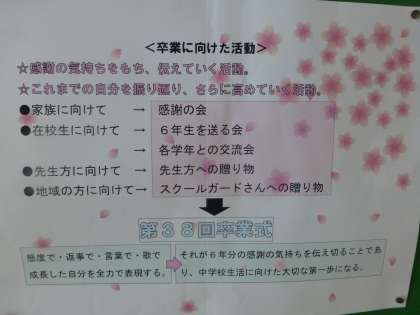 ＜卒業に向けた活動＞
☆感謝の気持ちをもち、伝えていく活動。
☆これまでの自分を振り返り、さらに高めていく活動。
●家族に向けて → 感謝の会
●在校生に向けて → ６年生を送る会
→ 各学年との交流会
●先生方に向けて → 先生方への贈り物
●地域の方に向けて→ スクールガードさんへの贈り物
第３８回卒業式
態度で・返事で・言葉で・歌で
成長した自分を全力で表現する。
→
それが６年分の感謝の気持ちを伝え切ることであ
り、中学校生活に向けた大切な第一歩になる。